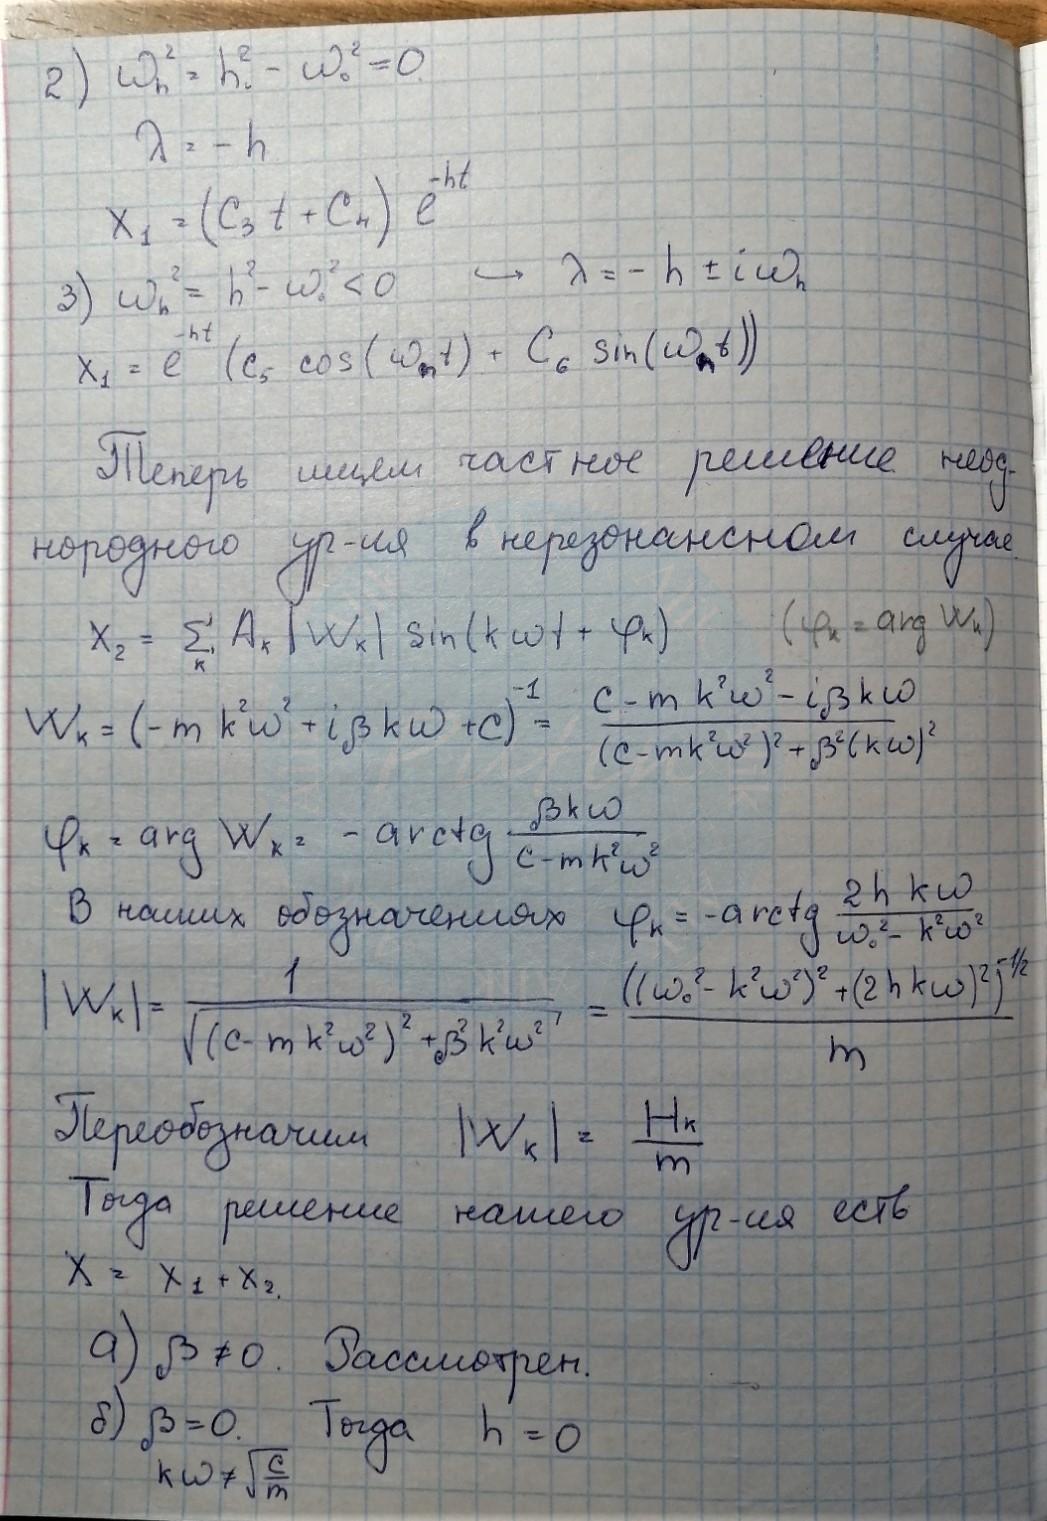 2) ω_h² = h² - ω₀² = 0
λ = - h
x₁ = (C₃ t + C₄) e^{-ht}
3) ω_h² = h² - ω₀² < 0 → λ = - h ± i ω_h
x₁ = e^{-ht} (C₅ cos(ω_h t) + C₆ sin(ω_h t))
Теперь ищем частное решение неод-
нородного ур-ия в нерезонансном случае.
x₂ = Σ_k A_k |W_k| sin(kωt + φ_k) (φ_k = arg W_k)
W_k = (-m k²ω² + iβkω + c)^{-1} = (c - m k²ω² - iβkω) / ((c - mk²ω²)² + β²(kω)²)
φ_k = arg W_k = - arctg (βkω / (c - mk²ω²))
В наших обозначениях φ_k = -arctg (2h kω / (ω₀² - k²ω²))
|W_k| = 1 / √((c - m k²ω²)² + β²k²ω²) = ((ω₀² - k²ω²)² + (2hkω)²)^{-1/2} / m
Переобозначим |W_k| = H_k / m
Тогда решение нашего ур-ия есть
X = x₁ + x₂.
а) β ≠ 0. Рассмотрен.
б) β = 0. Тогда h = 0
kω ≠ √(c/m)